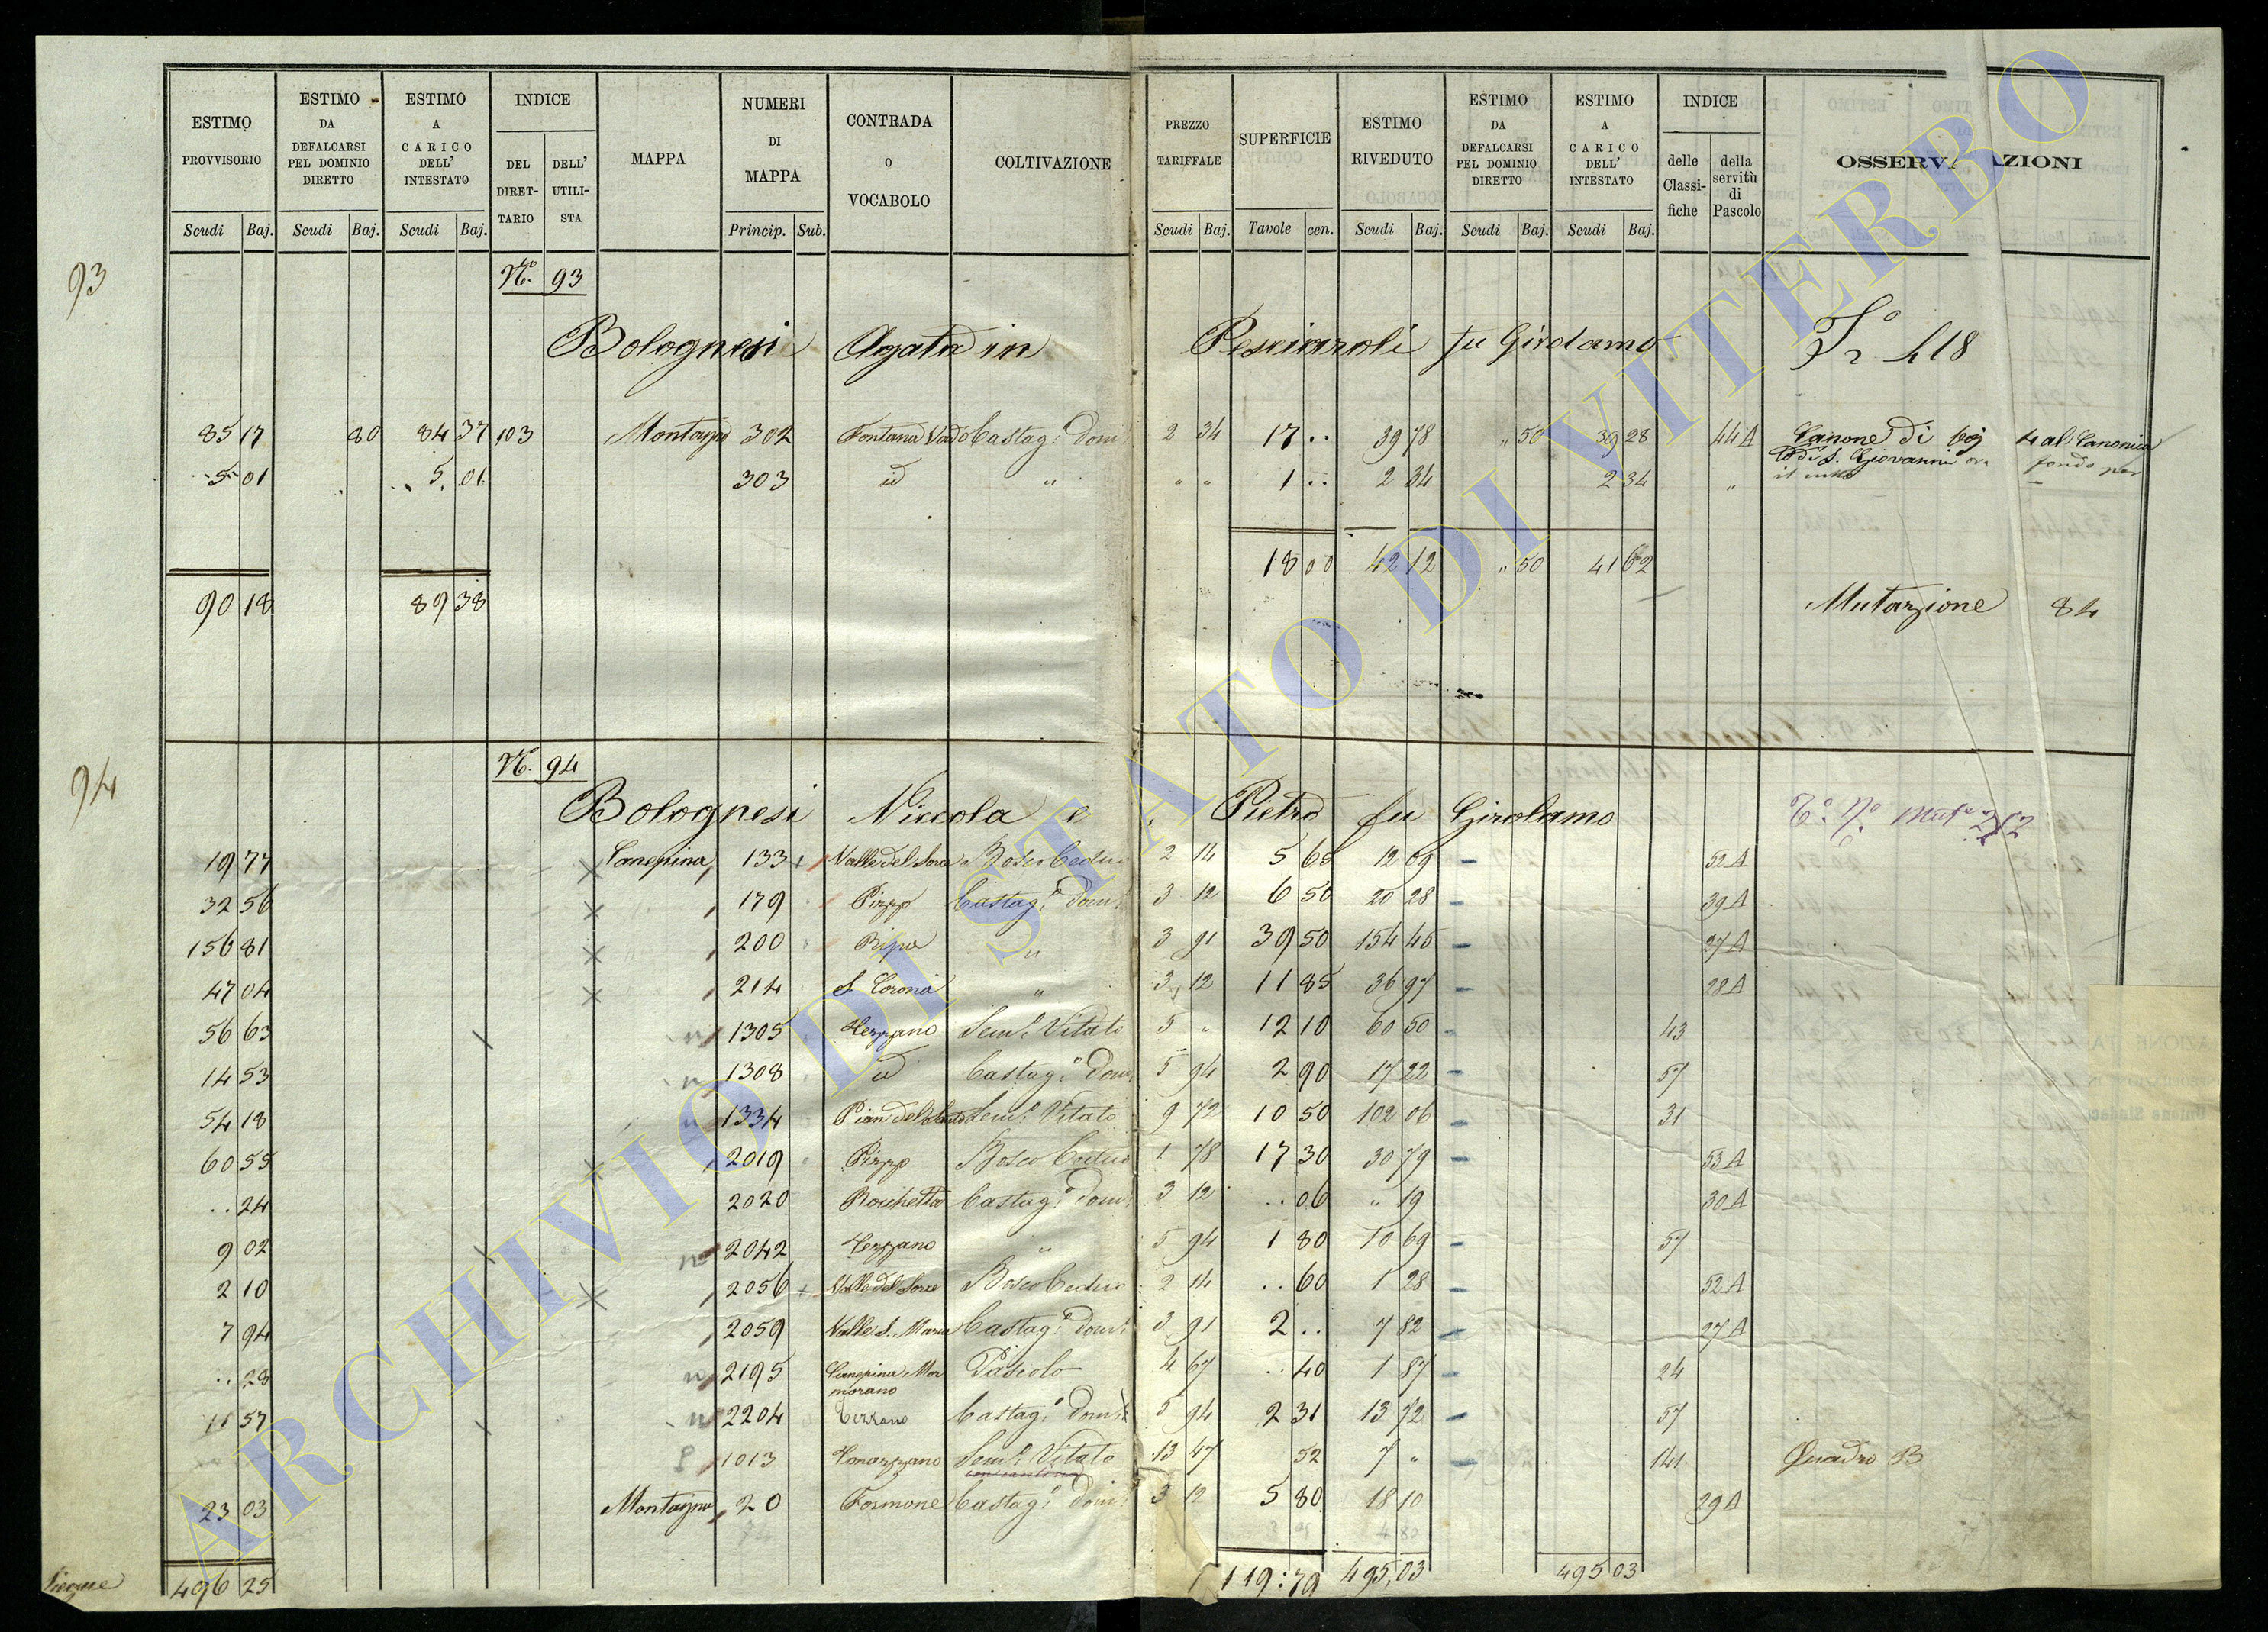 ESTIMO PROVVISORIO | ESTIMO DA DEFALCARSI PEL DOMINIO DIRETTO | ESTIMO A CARICO DELL' INTESTATO | INDICE | MAPPA | NUMERI DI MAPPA | CONTRADA O VOCABOLO | COLTIVAZIONE | PREZZO TARIFFALE | SUPERFICIE | ESTIMO RIVEDUTO | ESTIMO DA DEFALCARSI PEL DOMINIO DIRETTO | ESTIMO A CARICO DELL' INTESTATO | INDICE | OSSERVAZIONI
DEL DIRET-TARIO | DELL' UTILI-STA | delle Classi-fiche | della servitù di Pascolo
Scudi | Baj. | Scudi | Baj. | Scudi | Baj. | Princip. | Sub. | Scudi | Baj. | Tavole | cen. | Scudi | Baj. | Scudi | Baj. | Scudi | Baj.
93
No. 93
Bolognesi Agata in Pesciaroli fu Girolamo 418
85 17 | 80 | 84 37 | 103 | Montagna | 302 | Fontana Vado | Castag. Dom. | 2 34 | 17 .. | 39 78 | " 50 | 39 28 | 44 A | Canone di baj 4 al Canonica
to di S. Giovanni fondo per
5 01 | 5. 01. | 303 | id | " | " " | 1 .. | 2 34 | 2 34 | "
18 00 | 42 12 | " 50 | 41 62
90 18 | 89 38 | Mutazione 84
94
No. 94
Bolognesi Niccola e Pietro fu Girolamo
19 77 | Canepina | 133 + | Valle del Sora | Bosco Ceduo | 2 14 | 5 65 | 12 09 | 52 A
32 56 | 179 | Pizzo | Castag. Dom. | 3 12 | 6 50 | 20 28 | 39 A
156 81 | 200 | Ripa | " | 3 91 | 39 50 | 154 45 | 27 A
47 04 | 214 | S Corona | " | 3 12 | 11 85 | 36 97 | 28 A
56 63 | 1305 | Tezzano | Sem. Vitato | 5 " | 12 10 | 60 50 | 43
14 53 | 1308 | id | Castag. Dom. | 5 94 | 2 90 | 17 22 | 57
54 18 | 1334 | Pian del | Sem. Vitato | 9 72 | 10 50 | 102 06 | 31
60 55 | 2019 | Pizzo | Bosco Ceduo | 1 78 | 17 30 | 30 79 | 53 A
.. 24 | 2020 | Rocchetta | Castag. Dom. | 3 12 | .. 06 | " 19 | 30 A
9 02 | 2042 | Tezzano | " | 5 94 | 1 80 | 10 69 | 57
2 10 | 2056 + | Valle del Sora | Bosco Ceduo | 2 14 | .. 60 | 1 28 | 52 A
7 94 | 2059 | Valle S. Maria | Castag. Dom. | 3 91 | 2 .. | 7 82 | 27 A
.. 28 | 2195 | Canepina Mor | Pascolo | 4 67 | .. 40 | 1 87 | 24
morano
11 57 | 2204 | Tezzano | Castag. Dom. | 5 94 | 2 31 | 13 72 | 57
1013 | Sem. Vitato | 13 47 | 52 | 7 " | 141 | Quadro B
23 03 | Montagna | 20 | Formone | Castag. Dom. | 3 12 | 5 80 | 18 10 | 29 A
496 25 | 119:79 | 495,03 | 495 03
ARCHIVIO DI STATO DI VITERBO